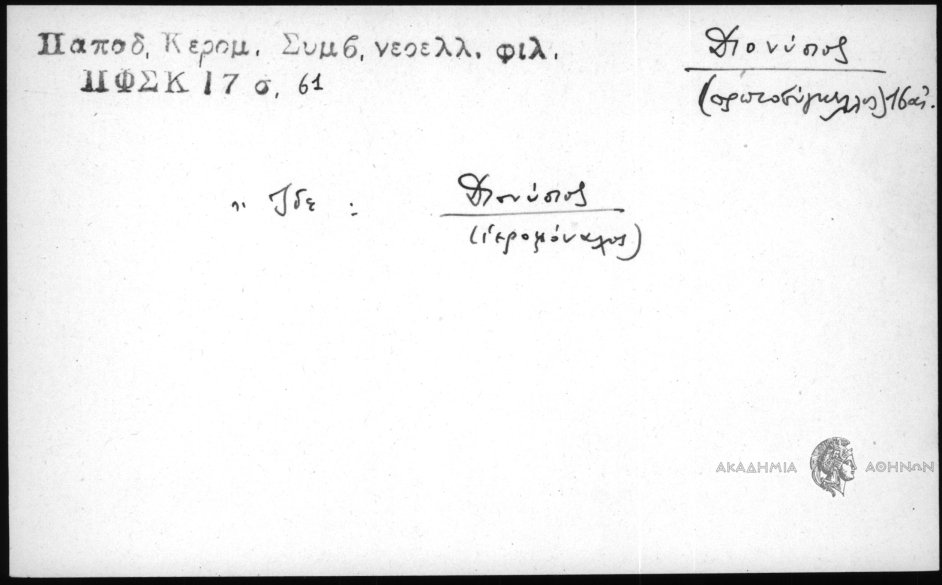 Παποδ, Κερομ. Συμβ, νεοελλ. φιλ.
ΠΦΣΚ 17 σ, 61
Διονύσιος
(πρωτοσύγκελλος) 16 αἰ.
Ἴδε :
Διονύσιος
(ἱερομόναχος)
ΑΚΑΔΗΜΙΑ ΑΘΗΝΩΝ